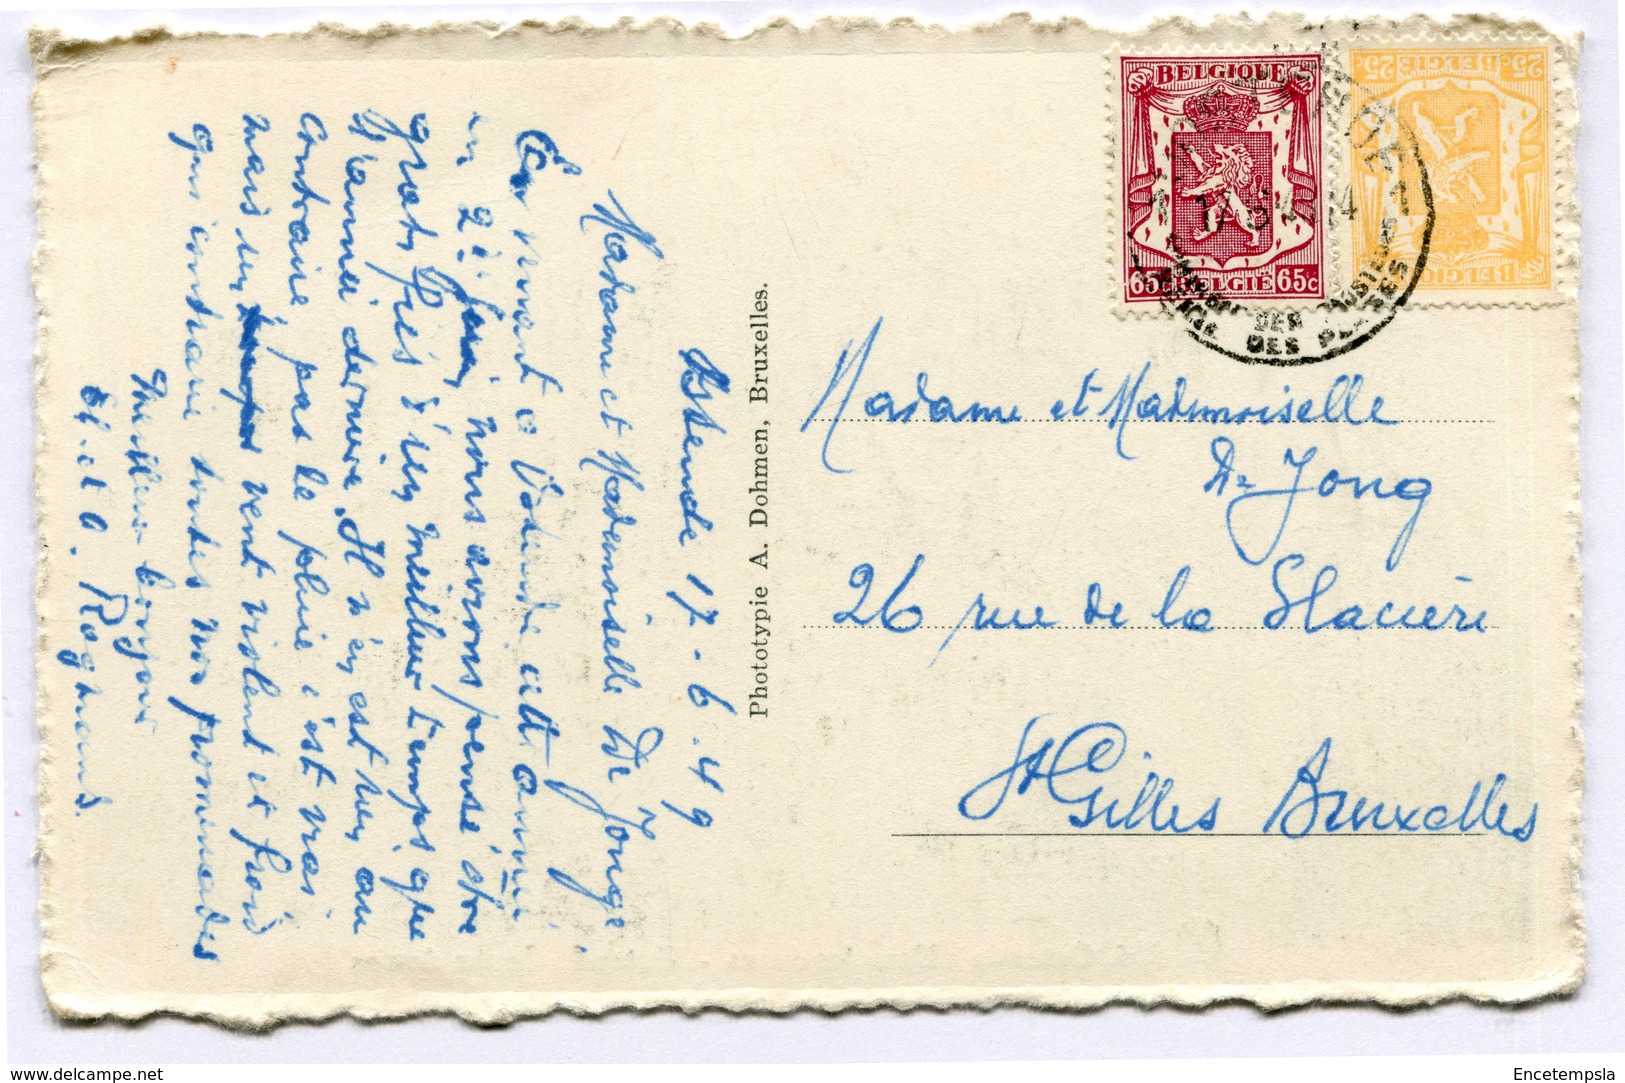 Ostende 17-6.49
Madame et Mademoiselle De Jonge
En venant à Ostende cette année
en 2è nous avions pensé être
gratifiés d'un meilleur temps que
l'année dernière. Il n'en est rien au
contraire pas de pluie c'est vrai
mais un vent violent et froid
qui contrarie toutes nos promenades
Meilleur bonjour
El. et O. Roymans.
Phototypie A. Dohmen, Bruxelles.
BELGIQUE
65c BELGIE 65c
25c BELGIE 25c
BELGIQUE
17 6 14
DES
DES PLAGES
Madame et Mademoiselle
De Jong
26 rue de la Glacière
St Gilles Bruxelles
delcampe.net
Encetempsla